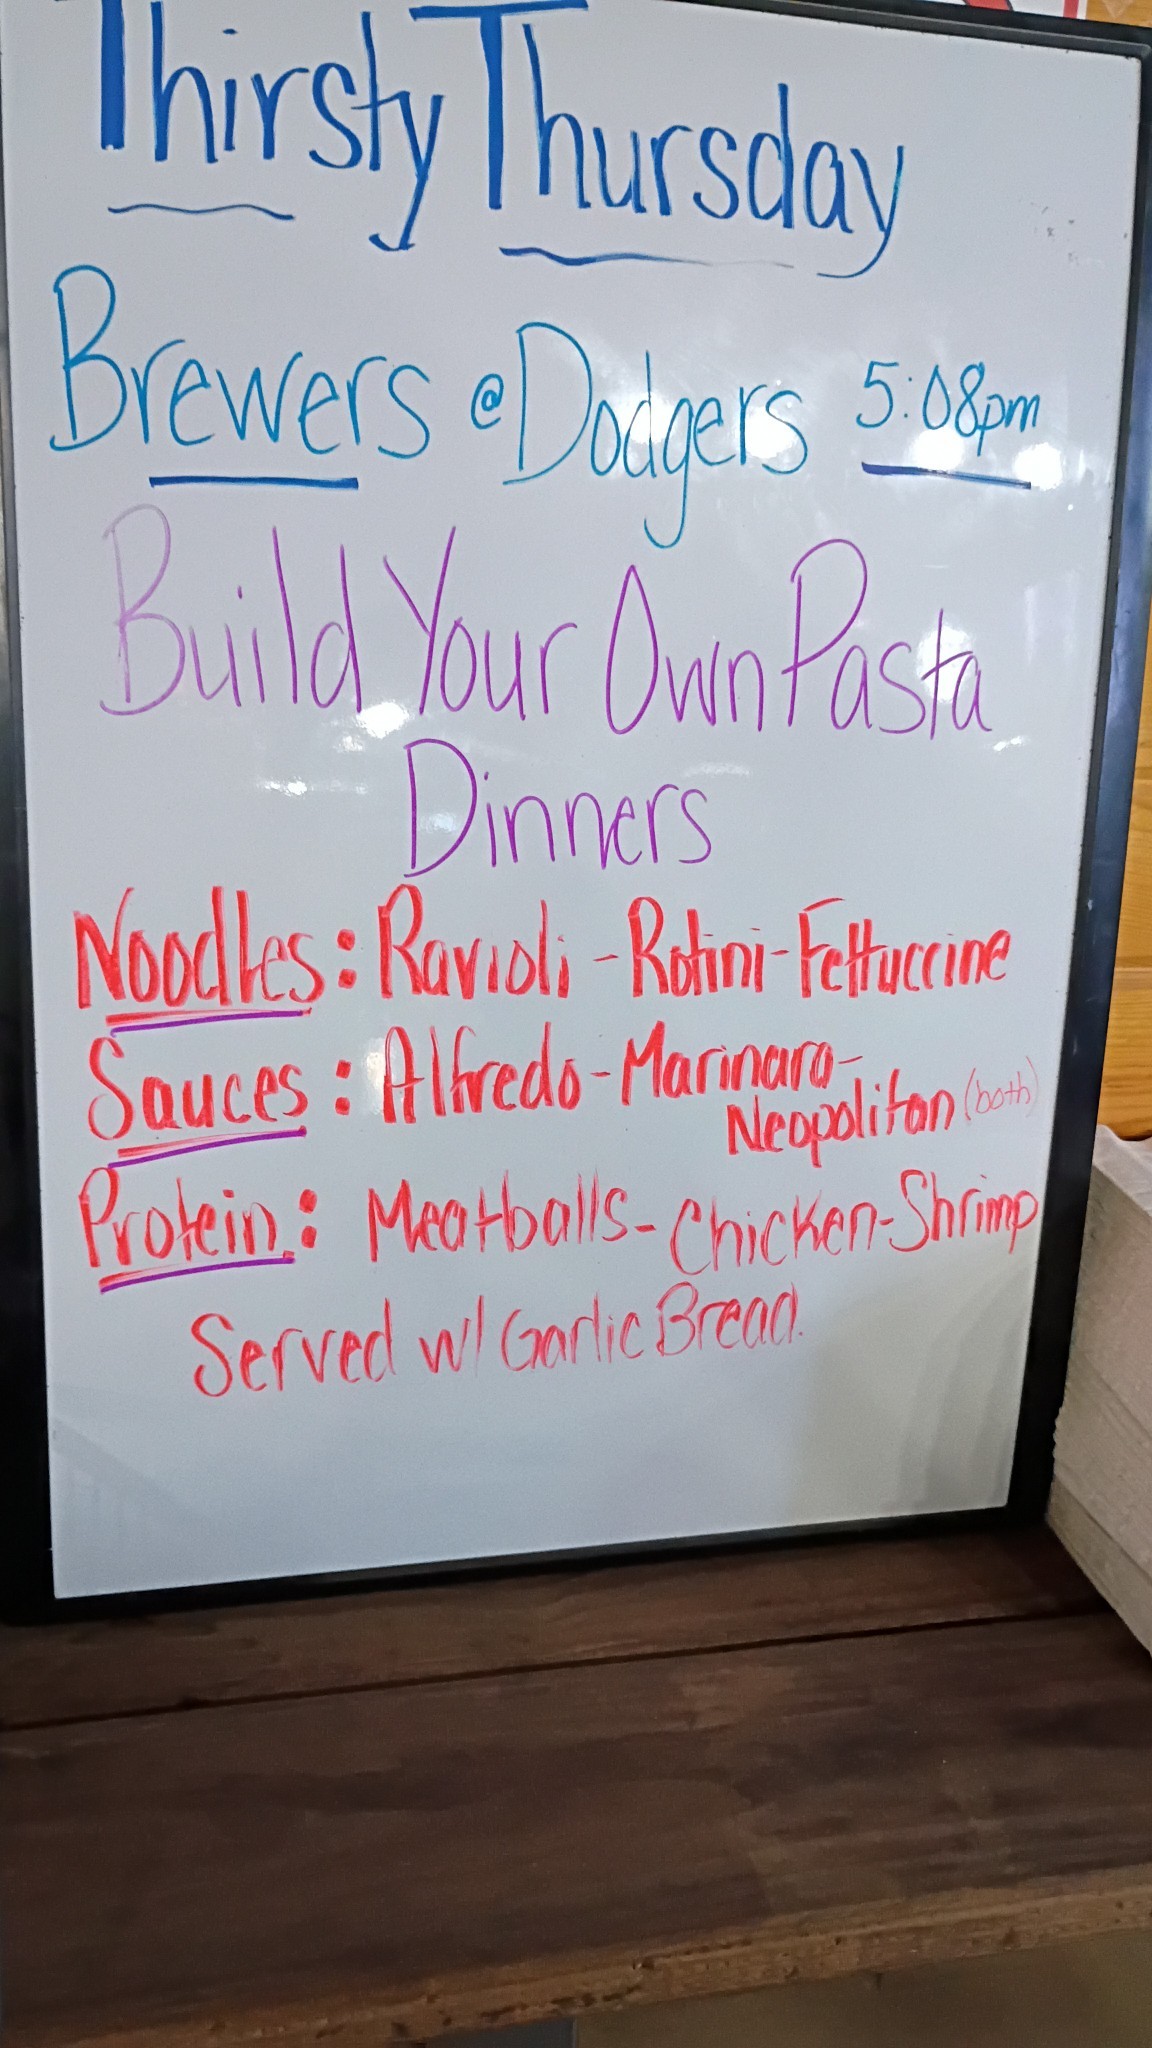 Thirsty Thursday
Brewers @ Dodgers 5:08pm
Build Your Own Pasta
Dinners
Noodles: Ravioli - Rotini - Fettuccine
Sauces: Alfredo - Marinara -
Neopolitan (both)
Protein: Meatballs - Chicken - Shrimp
Served w/ Garlic Bread.